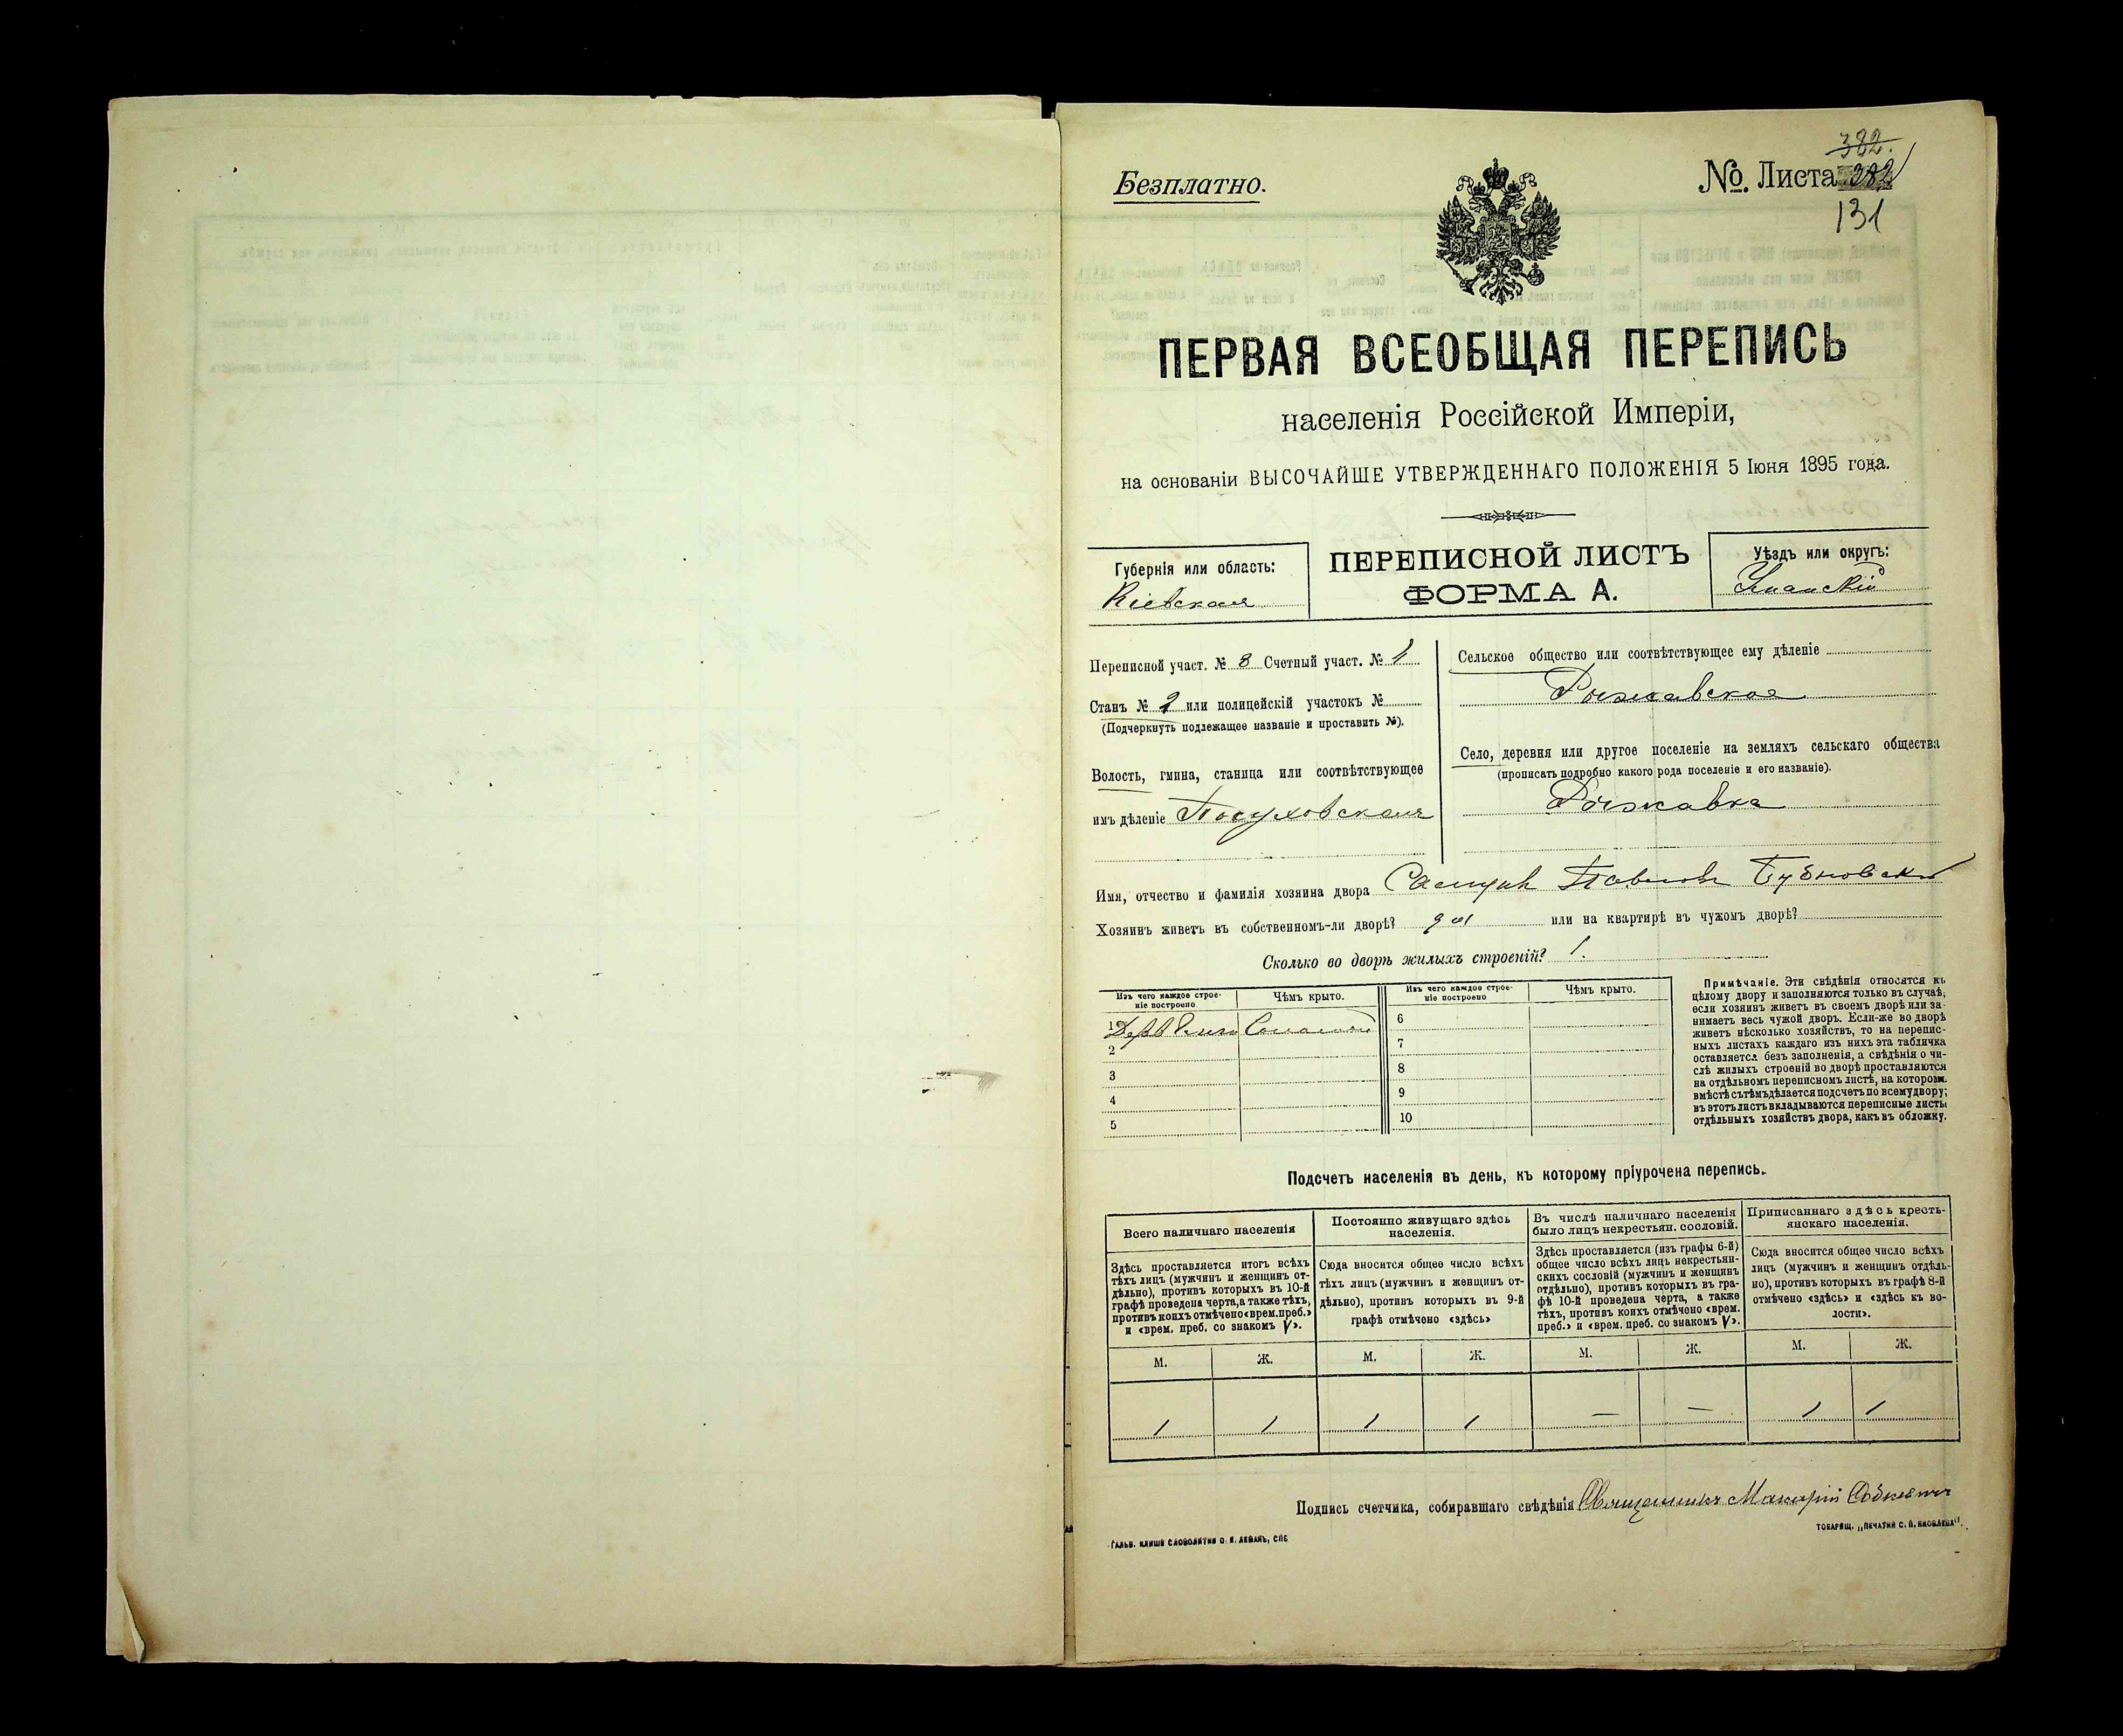 Безплатно.
382.
№. Листа 382
131
ПЕРВАЯ ВСЕОБЩАЯ ПЕРЕПИСЬ
населенія Россійской Имперіи,
на основаніи ВЫСОЧАЙШЕ УТВЕРЖДЕННАГО ПОЛОЖЕНІЯ 5 Іюня 1895 года.
Губернія или область:
Кіевская
ПЕРЕПИСНОЙ ЛИСТЪ
ФОРМА А.
Уѣздъ или округъ:
Уманскій
Переписной участ. № 8 Счетный участ. № 1
Станъ № 2 или полицейскій участокъ №
(Подчеркнуть подлежащее названіе и проставить №).
Волость, гмина, станица или соотвѣтствующее
имъ дѣленіе Посуховская
Сельское общество или соотвѣтствующее ему дѣленіе
Рыжавское
Село, деревня или другое поселеніе на земляхъ сельскаго общества
(прописать подробно какого рода поселеніе и его названіе).
Рыжавка
Имя, отчество и фамилія хозяина двора Самуил Павлов
Хозяинъ живетъ въ собственномъ-ли дворѣ? да или на квартирѣ въ чужомъ дворѣ?
Сколько во дворѣ жилыхъ строеній? 1.
Изъ чего каждое строе-
ніе построено
Чѣмъ крыто.
Изъ чего каждое строе-
ніе построено
Чѣмъ крыто.
1 Соломою
2
3
4
5
6
7
8
9
10
Примѣчаніе. Эти свѣдѣнія относятся къ
цѣлому двору и заполняются только въ случаѣ,
если хозяинъ живетъ въ своемъ дворѣ или за-
нимаетъ весь чужой дворъ. Если-же во дворѣ
живетъ нѣсколько хозяйствъ, то на перепис-
ныхъ листахъ каждаго изъ нихъ эта табличка
оставляется безъ заполненія, а свѣдѣнія о чи-
слѣ жилыхъ строеній во дворѣ проставляются
на отдѣльномъ переписномъ листѣ, на которомъ
вмѣстѣ съ тѣмъ дѣлается подсчетъ по всему двору;
въ этотъ листъ вкладываются переписные листы
отдѣльныхъ хозяйствъ двора, какъ въ обложку.
Подсчетъ населенія въ день, къ которому пріурочена перепись.
Всего наличнаго населенія
Здѣсь проставляется итогъ всѣхъ
тѣхъ лицъ (мужчинъ и женщинъ от-
дѣльно), противъ которыхъ въ 10-й
графѣ проведена черта, а также тѣхъ,
противъ коихъ отмѣчено «врем. преб.»
и «врем. преб. со знакомъ V».
Постоянно живущаго здѣсь
населенія.
Сюда вносится общее число всѣхъ
тѣхъ лицъ (мужчинъ и женщинъ от-
дѣльно), противъ которыхъ въ 9-й
графѣ отмѣчено «здѣсь»
Въ числѣ наличнаго населенія
было лицъ некрестьян. сословій.
Здѣсь проставляется (изъ графы 6-й)
общее число всѣхъ лицъ некрестьян-
скихъ сословій (мужчинъ и женщинъ
отдѣльно), противъ которыхъ въ гра-
фѣ 10-й проведена черта, а также
тѣхъ, противъ коихъ отмѣчено «врем.
преб.» и «врем. преб. со знакомъ V».
Приписаннаго здѣсь кресть-
янскаго населенія.
Сюда вносится общее число всѣхъ
лицъ (мужчинъ и женщинъ отдѣль-
но), противъ которыхъ въ графѣ 8-й
отмѣчено «здѣсь» и «здѣсь къ во-
лости».
М. Ж. М. Ж. М. Ж. М. Ж.
1 1 1 1 — — 1 1
Подпись счетчика, собиравшаго свѣдѣнія Священникъ Макарій
ГАЛЬВ. КЛИШЕ СЛОВОЛИТНИ О. И. ЛЕМАНЪ, СПБ
ТОВАРИЩ. „ПЕЧАТНЯ С. П. ЯКОВЛЕВА"